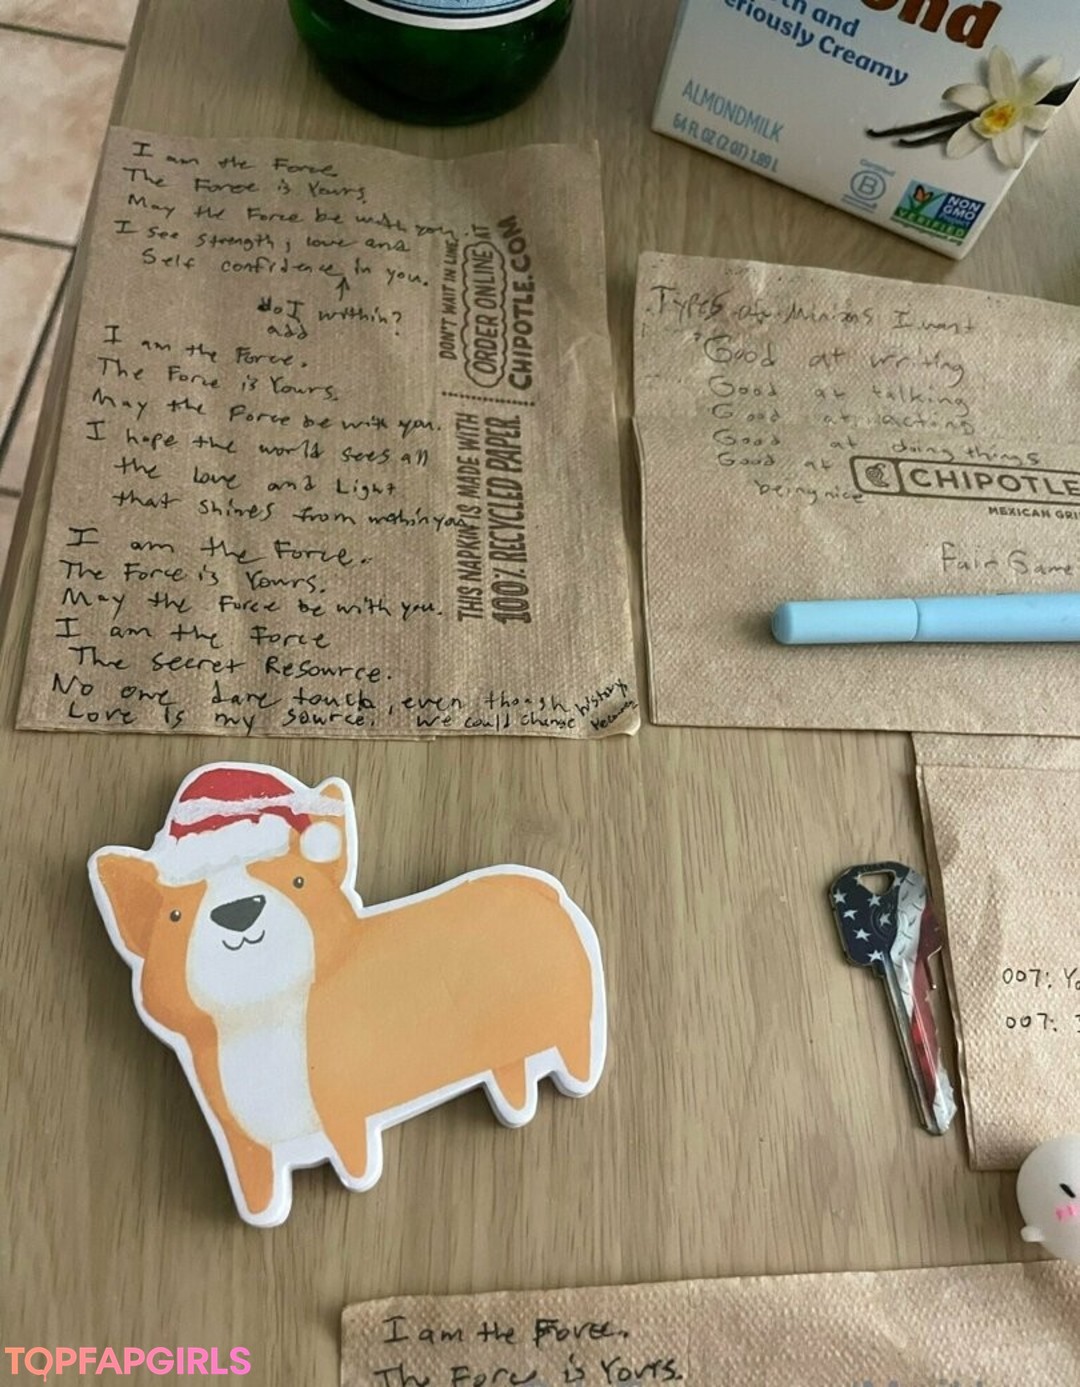 ond
th and
eriously Creamy
ALMONDMILK
64 FL OZ (2 QT) 1.89 L
Certified
B
NON
GMO
VERIFIED
I am the Force
The Force is Yours.
May the Force be with you.
I see strength, love and
Self confidence in you.
do I within?
add
I am the Force.
The Force is Yours.
May the Force be with you.
I hope the world sees all
the love and Light
that shines from within you
I am the Force.
The Force is Yours.
May the Force be with you.
I am the Force
The Secret Resource.
No one dare touch, even though
Love is my source. we could change history
DON'T WAIT IN LINE,
ORDER ONLINE AT
CHIPOTLE.COM
THIS NAPKIN IS MADE WITH
100% RECYCLED PAPER
Types of Minions I want
Good at writing
Good at talking
Good at acting
Good at doing things
Good at
being nice
CHIPOTLE
MEXICAN GRI
Fair Game
007: Yo
007: I
I am the Force.
The Force is Yours.
TOPFAPGIRLS